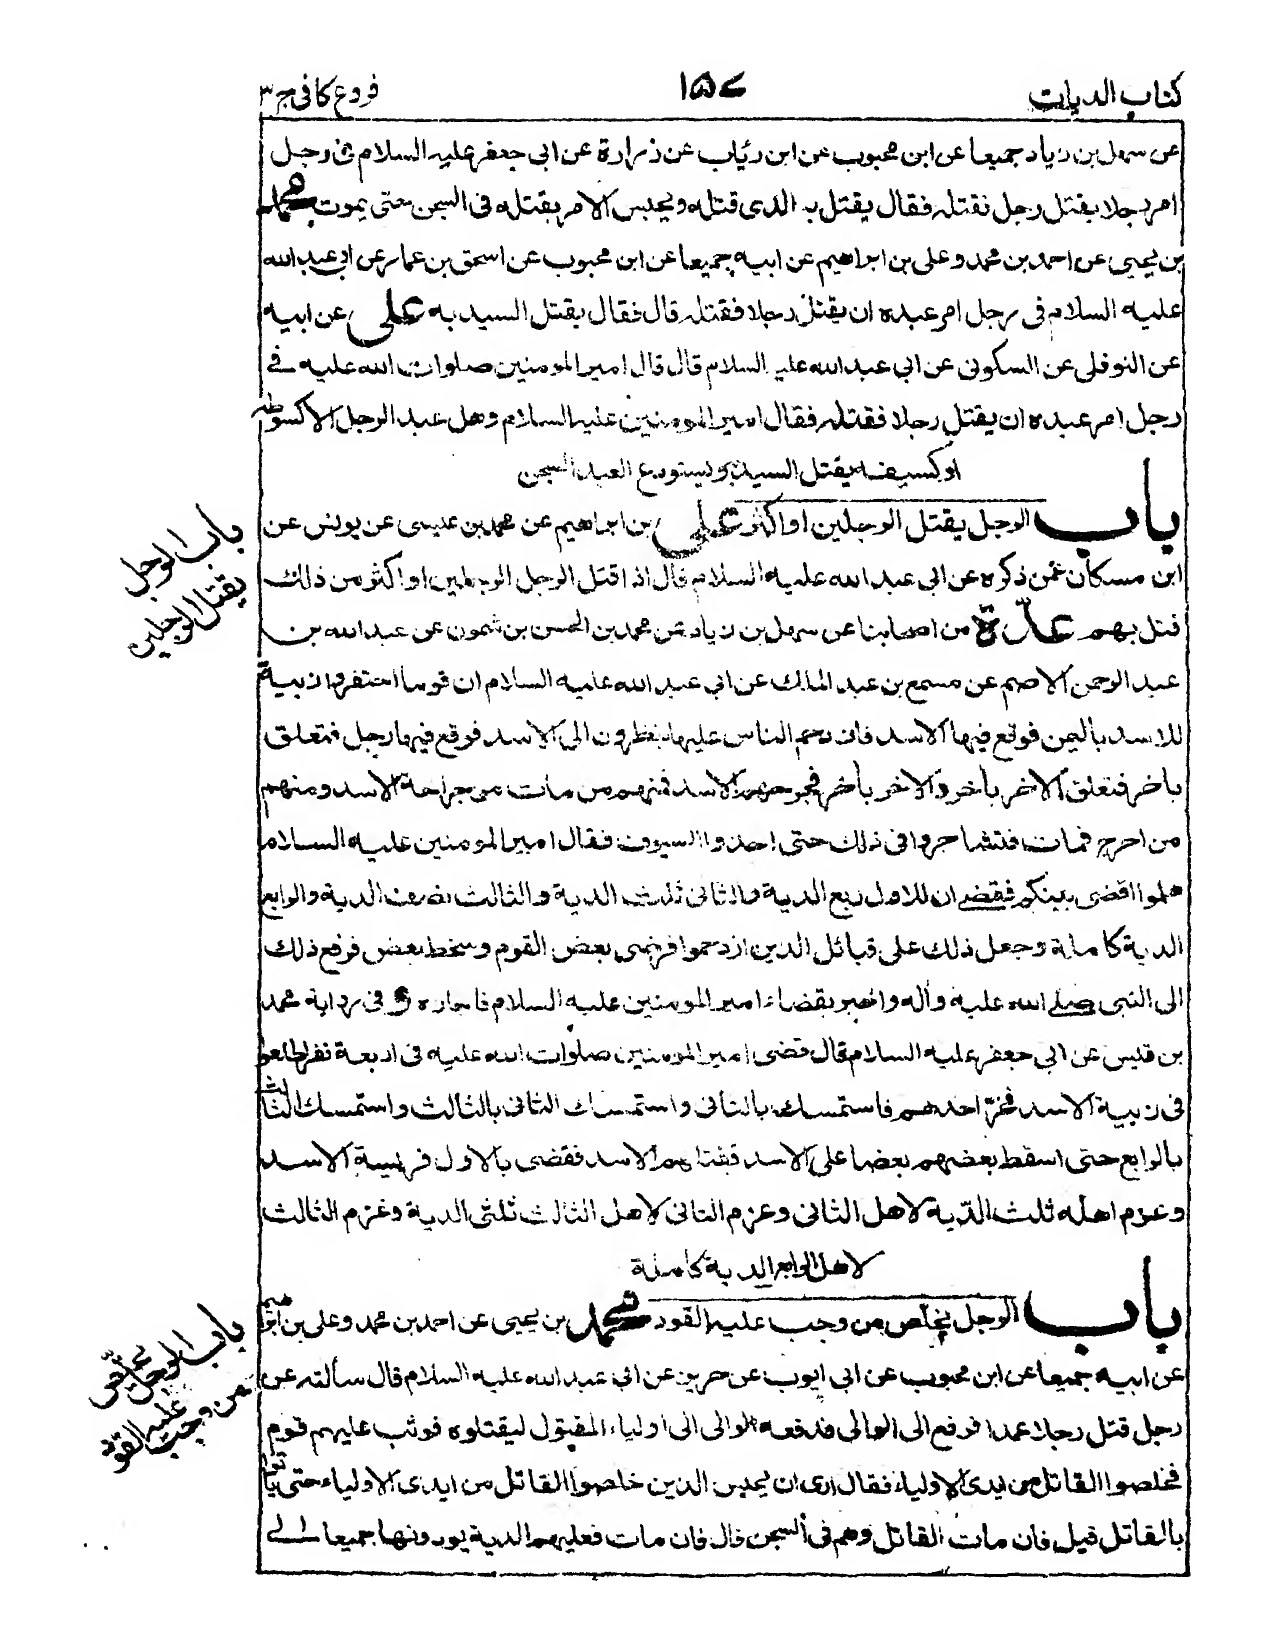 كتاب الديات
١٥٧
فروع كافى ج ٣
عن سهل بن زياد جميعا عن ابن محبوب عن ابن رئاب عن زرارة عن ابى جعفر عليه السلام فى رجل
امر رجلا بقتل رجل فقتله فقال يقتل به الذى قتله ويحبس الامر بقتله فى السجن حتى يموت محمد
بن يحيى عن احمد بن محمد وعلى بن ابراهيم عن ابيه جميعا عن ابن محبوب عن اسحق بن عمار عن ابى عبد الله
عليه السلام فى رجل امر عبده ان يقتل رجلا فقتله قال فقال يقتل السيد به على عن ابيه
عن النوفلى عن السكونى عن ابى عبد الله عليه السلام قال قال امير المومنين صلوات الله عليه فے
رجل امر عبده ان يقتل رجلا فقتله فقال امير المومنين عليه السلام وهل عبد الرجل الا كسوطه
او كسيفه يقتل السيد به ويستودع العبد السجن
باب الرجل يقتل الرجلين او اكثر على بن ابراهيم عن محمد بن عيسى عن يونس عن
ابن مسكان عمن ذكره عن ابى عبد الله عليه السلام قال اذا قتل الرجل الرجلين او اكثر من ذلك
قتل بهم عدّة من اصحابنا عن سهل بن زياد عن محمد بن الحسن بن شمون عن عبد الله بن
عبد الرحمن الاصم عن مسمع بن عبد الملك عن ابى عبد الله عليه السلام ان قوما احتفروا زبية
للاسد باليمن فوقع فيها الاسد فازدحم الناس عليها ينظرون الى الاسد فوقع فيها رجل فتعلق
بأخر فتعلق الاخر بأخر والاخر بأخر فجرحهم الاسد فمنهم من مات من جراحة الاسد ومنهم
من اخرج فمات فتشاجروا فى ذلك حتى اخذوا السيوف فقال امير المومنين عليه السلام
هلموا اقضى بينكم فقضے ان للاول ربع الدية والثانى ثلث الدية والثالث نصف الدية والرابع
الدية كاملة وجعل ذلك على قبائل الذين ازدحموا فرضى بعض القوم وسخط بعض فرفع ذلك
الى النبى صلے الله عليه وأله واخبر بقضاء امير المومنين عليه السلام فاجازه و فى رواية محمد
بن قيس عن ابى جعفر عليه السلام قال قضى امير المومنين صلوات الله عليه فى اربعة نفر اطلعوا
فى زبية الاسد فخرّ احدهم فاستمسك بالثانى واستمسك الثانى بالثالث واستمسك الثالث
بالرابع حتى اسقط بعضهم بعضا على الاسد فقتلهم الاسد فقضى بالاول فريسة الاسد
وغرم اهله ثلث الدّية لاهل الثانى وغرم الثانى لاهل الثالث ثلثى الدية وغرم الثالث
لاهل الرابع الدية كاملة
باب الرجل يخلّص من وجب عليه القود محمد بن يحيى عن احمد بن محمد وعلى بن ابراهيم
عن ابيه جميعا عن ابن محبوب عن ابى ايوب عن حريز عن ابى عبد الله عليه السلام قال سألته عن
رجل قتل رجلا عمدا فرفع الى الوالى فدفعه الوالى الى اولياء المقتول ليقتلوه فوثب عليهم قوم
فخلصوا القاتل من يدى الاولياء فقال ارى ان يحبس الذين خلصوا القاتل من ايدى الاولياء حتى يأتوا
بالقاتل قيل فان مات القاتل وهم فى السجن قال فان مات فعليهم الدية يودونها جميعا الے
باب الرجل
يقتل الرجلين
باب الرجل يخلّص
من وجب عليه القود